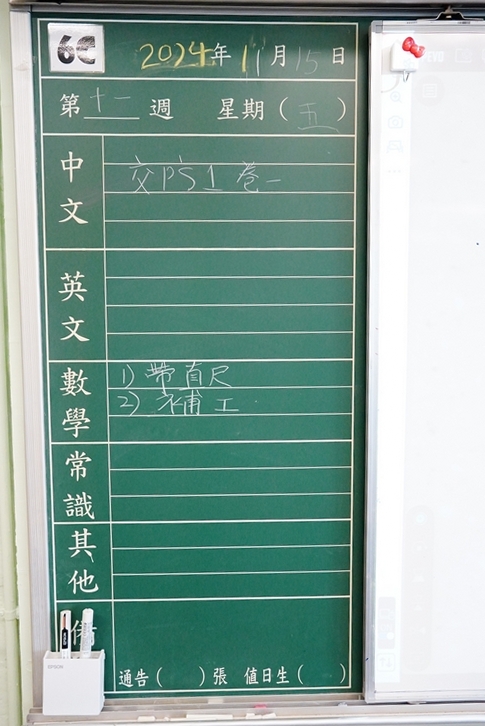 6C
2024年11月15日
第十一週 星期(五)
中文
交PS1 卷一
英文
數學
1) 帶直尺
2) 補工
常識
其他
備
EPSON
通告( )張 值日生( )